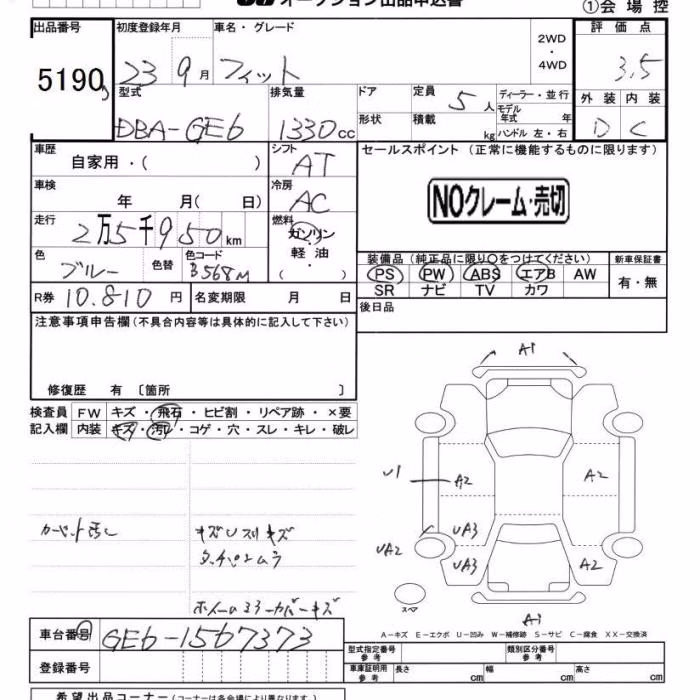 オークション出品申込書
①会場控
出品番号 初度登録年月 車名・グレード 2WD・4WD 評価点
5190 23 9月 フィット 3.5
型式 排気量 ドア 定員 5人 ディーラー・並行 外装 内装
DBA-GE6 1330cc 形状 積載 kg モデル年式 年 ハンドル 左・右 D C
車歴 自家用・( ) シフト AT セールスポイント (正常に機能するものに限ります)
車検 年 月( 日) 冷房 AC NOクレーム・売切
走行 2万5千950km 燃料 ガソリン・軽油・( )
色 ブルー 色替 色コード B568M 装備品 (純正品に限り○をつけてください) 新車保証書
PS PW ABS エアB AW 有・無
SR ナビ TV カワ
R券 10.810円 名変期限 月 日 後日品
注意事項申告欄 (不具合内容等は具体的に記入して下さい)
修復歴 有 〔箇所 〕
検査員 FW キズ・飛石・ヒビ割・リペア跡・×要
記入欄 内装 キズ・汚レ・コゲ・穴・スレ・キレ・破レ
A1
U1 A2 A2
カーペット汚レ キズUスリキズ UA3
UA2 UA3 A2
ホイールスリ・カバーキズ
スペア
A1
A-キズ E-エクボ U-凹み W-補修跡 S-サビ C-腐食 XX-交換済
車台番号 GE6-1567373
型式指定番号 参考 類別区分番号 参考
登録番号 車庫証明用 参考 長さ cm 幅 cm 高さ cm
希望出品コーナー (コーナーは各会場により異なります)